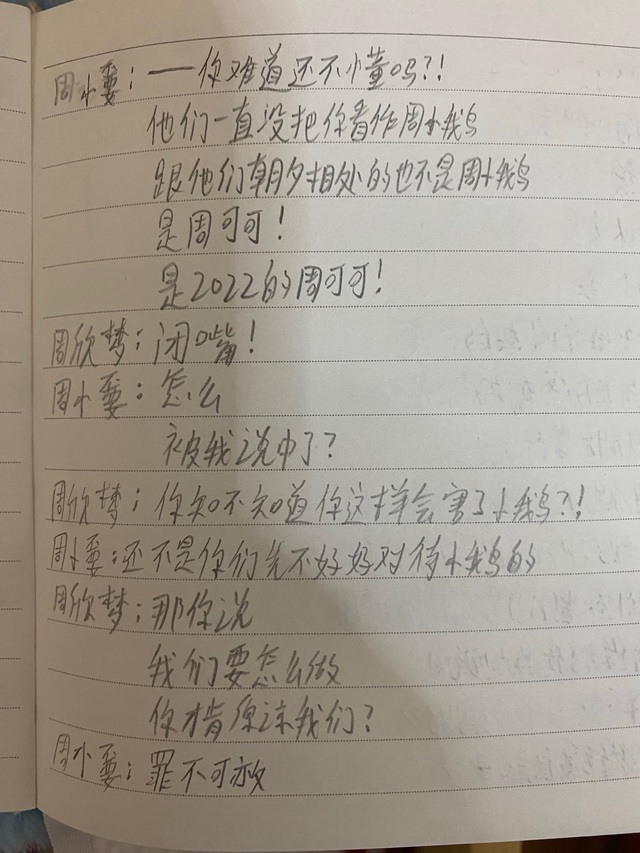 周小要：——你难道还不懂吗?!
他们一直没把你看作周小鹅
跟他们朝夕相处的也不是周小鹅
是周可可！
是2022的周可可！
周欣梦：闭嘴！
周小要：怎么
被我说中了？
周欣梦：你知不知道你这样会害了小鹅?!
周小要：还不是你们先不好好对待小鹅的
周欣梦：那你说
我们要怎么做
你才肯原谅我们？
周小要：罪不可赦